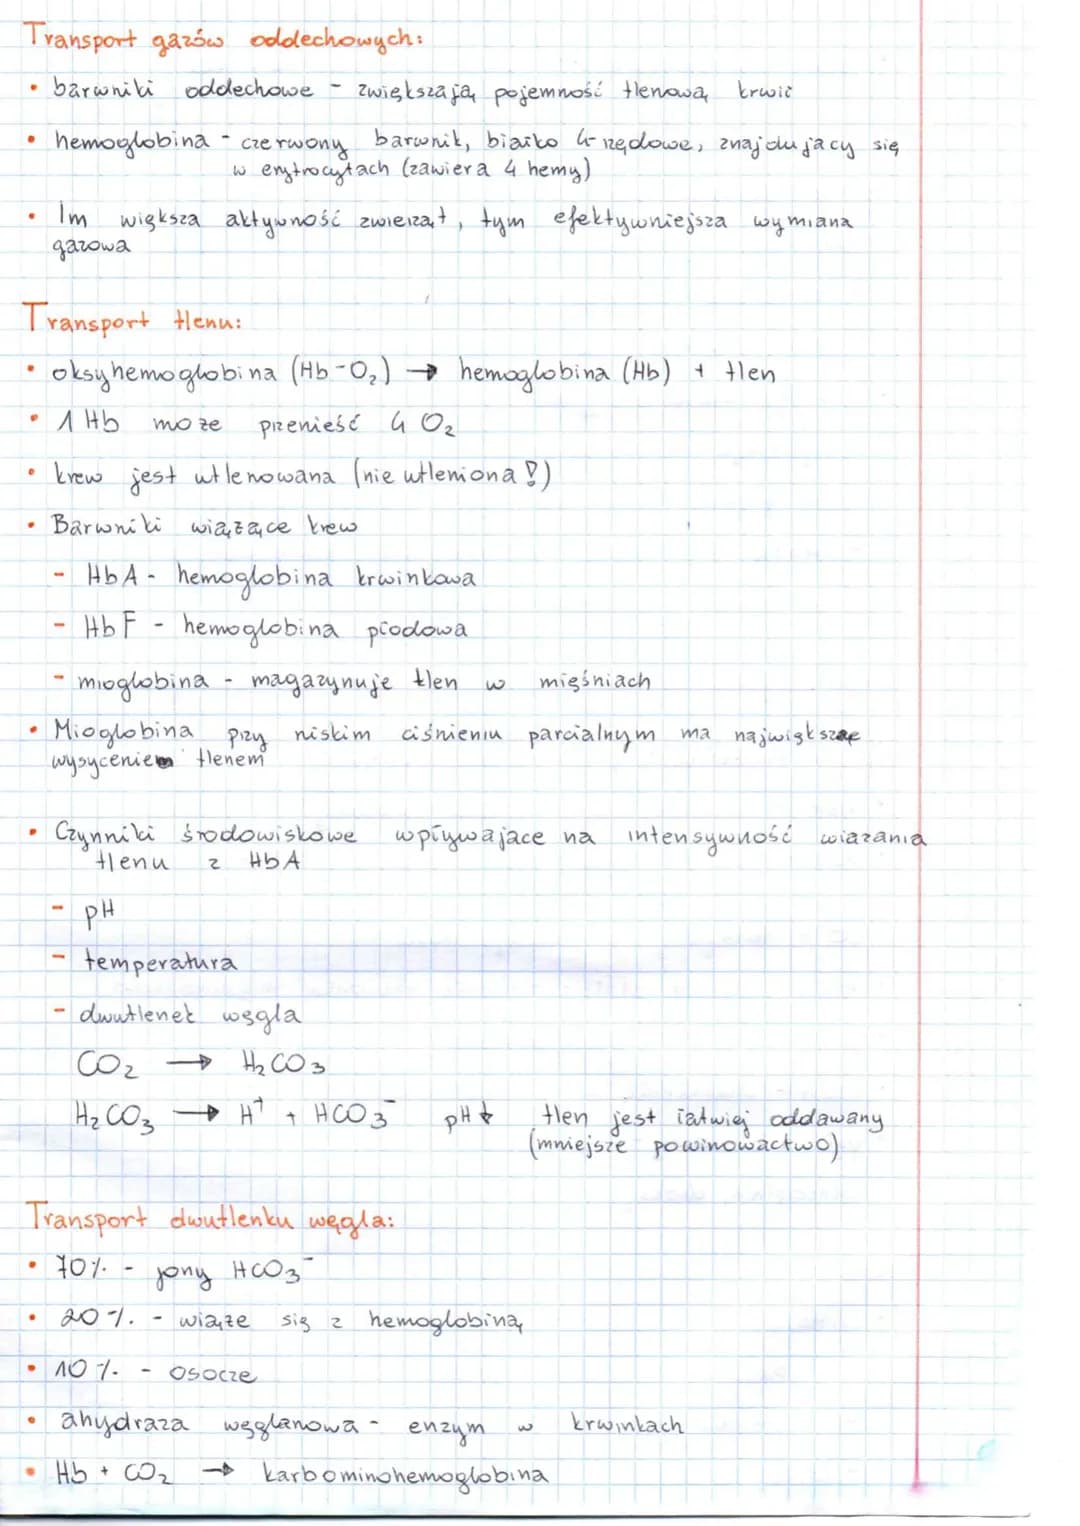 Transport gazów oddechowych:
• barwniki oddechowe - zwiększają pojemność tlenową krwi
• hemoglobina - czerwony barwnik, białko 4-rzędowe, znajdujacy się
w erytrocytach (zawiera 4 hemy)
• Im większa aktywność zwierząt, tym efektywniejsza wymiana
gazowa
Transport tlenu:
• oksyhemoglobina (Hb-O₂) → hemoglobina (Hb) + tlen
• 1 Hb może przenieść 4 O₂
• krew jest utlenowana (nie utleniona!)
• Barwniki wiążące krew
- HbA - hemoglobina krwinkowa
- HbF - hemoglobina płodowa
- mioglobina - magazynuje tlen w mięśniach
• Mioglobina przy niskim ciśnieniu parcialnym ma największe
wysycenie tlenem
• Czynniki środowiskowe wpływajace na intensywność wiazania
tlenu z HbA
- pH
- temperatura
- dwutlenek węgla
CO₂ → H₂CO₃
H₂CO₃ → H⁺ + HCO₃⁻ pH↓ tlen jest łatwiej oddawany
(mniejsze powinowactwo)
Transport dwutlenku węgla:
• 70% - jony HCO₃⁻
• 20% - wiąże się z hemoglobiną
• 10% - osocze
• ahydraza węglanowa - enzym w krwinkach
• Hb + CO₂ → karbominohemoglobina